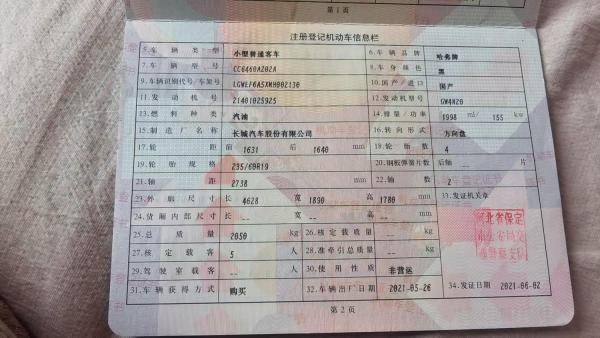 第1页
注册登记机动车信息栏
5.车辆类型 小型普通客车 6.车辆品牌 哈弗牌
7.车辆型号 CC6460AZ02A 8.车身颜色 黑
9.车辆识别代号/车架号 LGWEF6A5XMH002130 10.国产/进口 国产
11.发动机号 21401025925 12.发动机型号 GW4N20
13.燃料种类 汽油 14.排量/功率 1998 ml/ 155 kw
15.制造厂名称 长城汽车股份有限公司 16.转向形式 方向盘
17.轮距 前 1631 后 1640 mm 18.轮胎数 4
19.轮胎规格 235/60R19 20.钢板弹簧片数 后轴 -- 片
21.轴距 2738 mm 22.轴数 2
23.外廓尺寸 长 4628 宽 1890 高 1780 mm 33.发证机关章
24.货厢内部尺寸 长 -- 宽 -- 高 -- mm
25.总质量 2050 kg 26.核定载质量 -- kg
27.核定载客 5 人 28.准牵引总质量 -- kg
29.驾驶室载客 -- 人 30.使用性质 非营运
31.车辆获得方式 购买 32.车辆出厂日期 2021-05-26 34.发证日期 2021-06-02
河北省保定
第2页